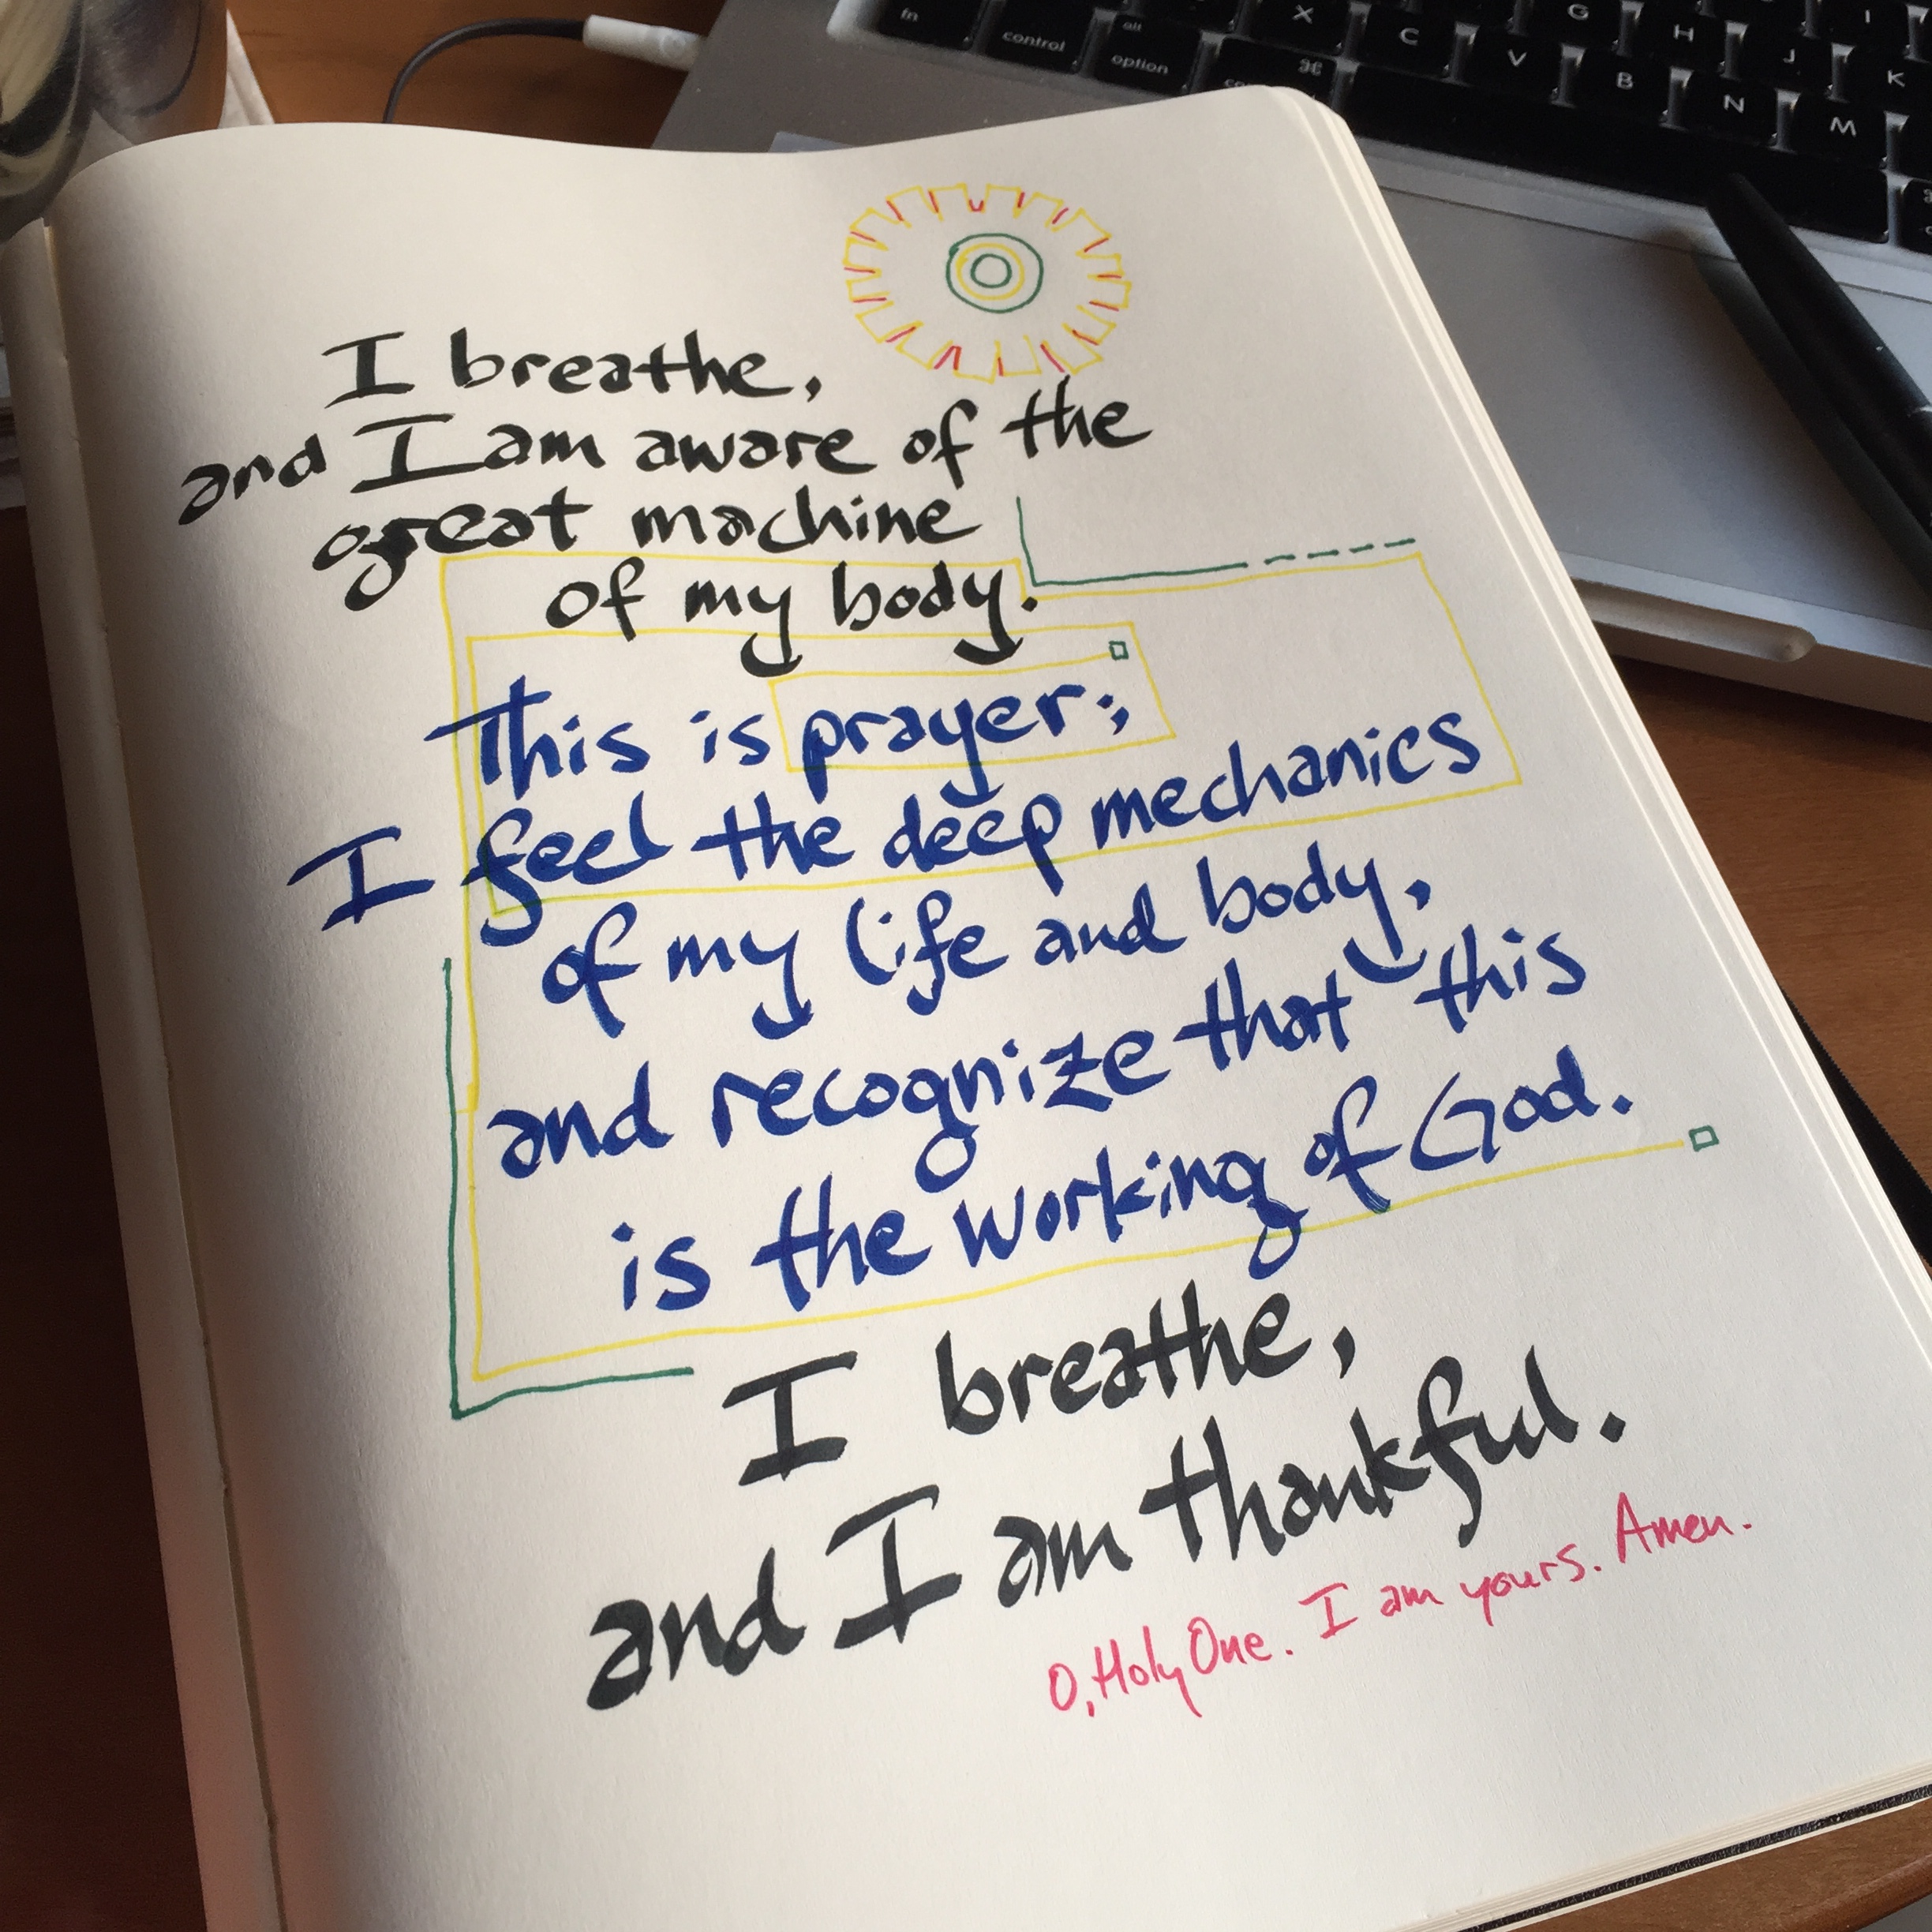 fn
control
alt
option
⌘
X
C
V
B
N
M
G
H
J
K
I
I breathe,
and I am aware of the
great machine
of my body.
This is prayer;
I feel the deep mechanics
of my life and body,
and recognize that this
is the working of God.
I breathe,
and I am thankful.
O, Holy One. I am yours. Amen.